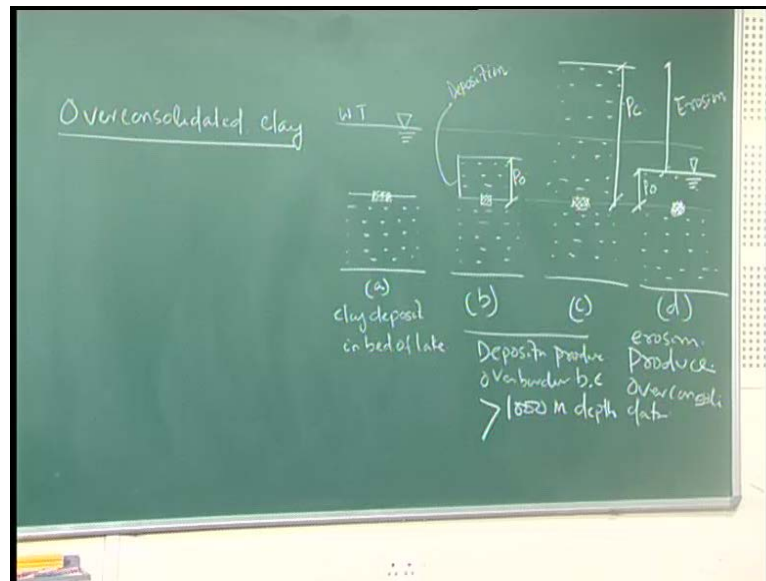 Overconsolidated clay
WT
Deposition
Po
Pc
Erosion
Po
(a)
clay deposit
in bed of lake
(b)
(c)
Deposith produce
overburden b,c
> 1000 m depth
(d)
erosion.
Produce
overconsoli
dation